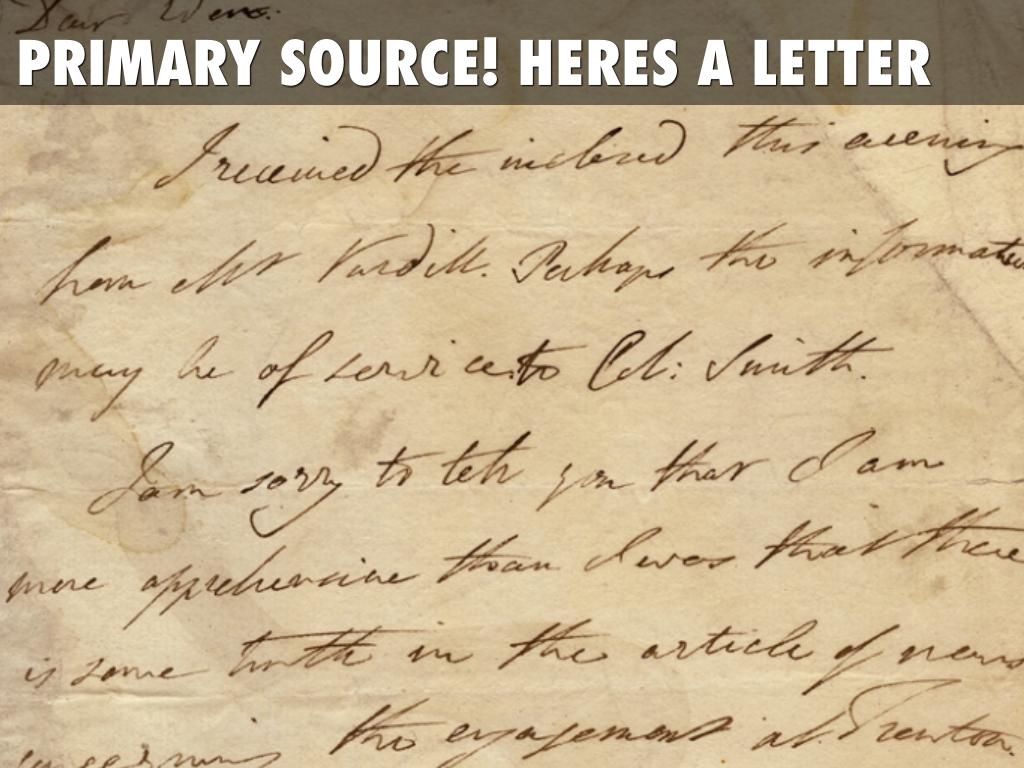 PRIMARY SOURCE! HERES A LETTER
Dear
I received the inclosed this evening
from Mr Vardill. Perhaps the informatio
may be of service to Col: Smith.
I am sorry to tell you that I am
more apprehensive than I was that there
is some truth in the article of news
the engagement at Trenton.